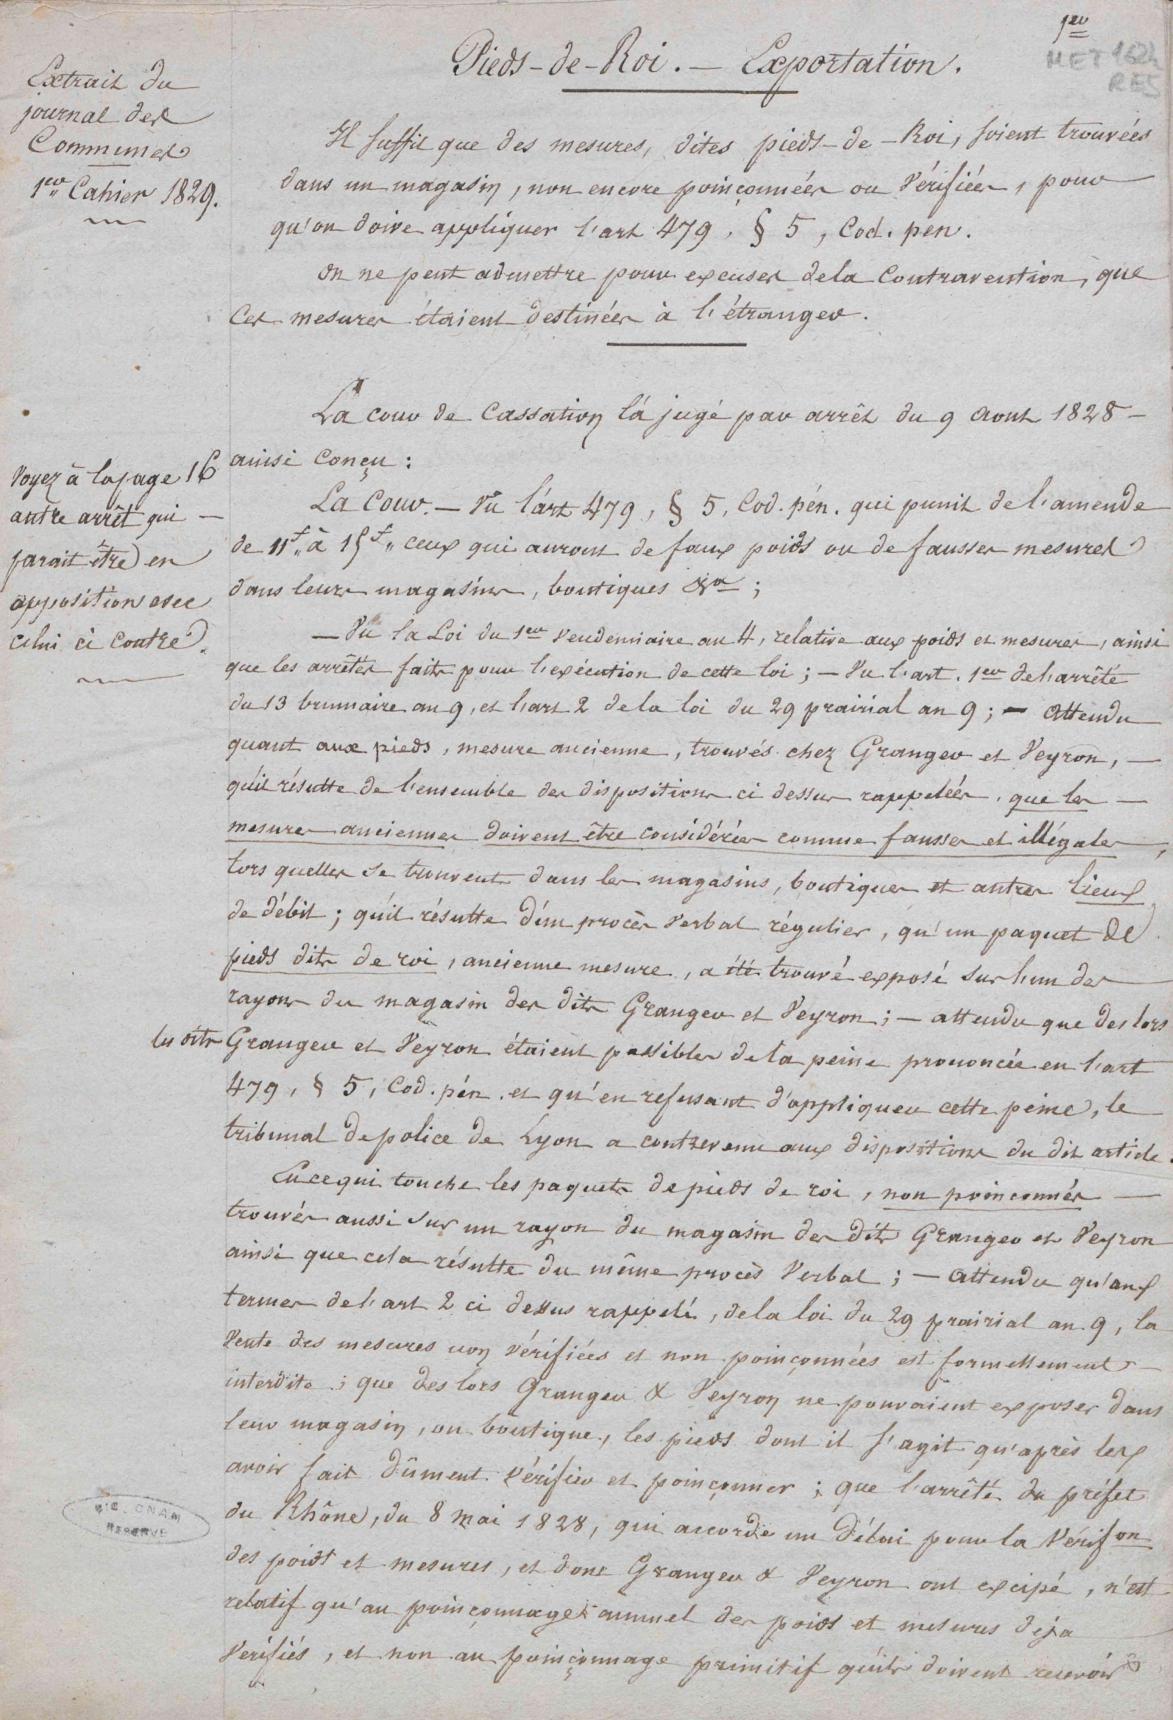 1er
MET 162
RES
Pieds-de-Roi. — Exportation.
Extrait du
journal des
Communes
1er Cahier 1829.
Il suffit que des mesures, dites pieds-de-Roi, soient trouvées
dans un magasin, non encore poinçonnées ou vérifiées, pour
qu'on doive appliquer l'art 479, § 5, Cod. pen.
on ne peut admettre pour excuser de la Contravention, que
Ces mesures étaient destinées à l'étranger.
La cour de Cassation l'a jugé par arrêt du 9 Aout 1828 —
ainsi conçu :
Voyez à la page 16
autre arrêt qui —
parait être en
opposition avec
celui ci contre.
La Cour. — Vu l'art 479, § 5, Cod. pén. qui punit de l'amende
de 11f „ à 15f „ ceux qui auront de faux poids ou de fausses mesures
dans leurs magasins, boutiques &a ;
— Vu la Loi du 1er Vendemiaire an 4, relative aux poids et mesures, ainsi
que les arrêtés faits pour l'exécution de cette loi ; — Vu l'art. 1er de l'arrêté
du 13 brumaire an 9, et l'art 2 de la loi du 29 prairial an 9 ; — Attendu
quant aux pieds, mesure ancienne, trouvés chez Granger et Veyron, —
qu'il résulte de l'ensemble des dispositions ci dessus rappelées, que les —
mesures anciennes doivent être considérées comme fausses et illégales,
lors quelles se trouvent dans les magasins, boutiques et autres lieux
de débit ; qu'il résulte d'un procès verbal régulier, qu'un paquet de
pieds dits de roi, ancienne mesure, a été trouvé exposé sur l'un des
rayons du magasin des dits Granger et Veyron ; — attendu que des lors
les dits Granger et Veyron étaient passibles de la peine prononcée en l'art
479, § 5, Cod. pén. et qu'en refusant d'appliquer cette peine, le
tribunal de police de Lyon a contrevenu aux dispositions du dit article.
En ce qui touche les paquets de pieds de roi, non poinçonnés —
trouvés aussi sur un rayon du magasin des dits Granger et Veyron
ainsi que cela résulte du même procès Verbal ; — Attendu qu'aux
termes de l'art 2 ci dessus rappelé, de la loi du 29 prairial an 9, la
Vente des mesures non vérifiées et non poinçonnées est formellement —
interdite ; que des lors Granger & Veyron ne pouvaient exposer dans
leur magasin, ou boutique, les pieds dont il s'agit qu'après les
avoir fait dûment vérifier et poinçonner ; que l'arrêté du préfet
du Rhône, du 8 mai 1828, qui accorde un délai pour la Vérifon
des poids et mesures, et dont Granger & Veyron ont excipé, n'est
relatif qu'au poinçonnage annuel des poids et mesures deja
Vérifiés, et non au poinçonnage primitif qu'ils doivent recevoir
BIB. CNAM
RESERVE